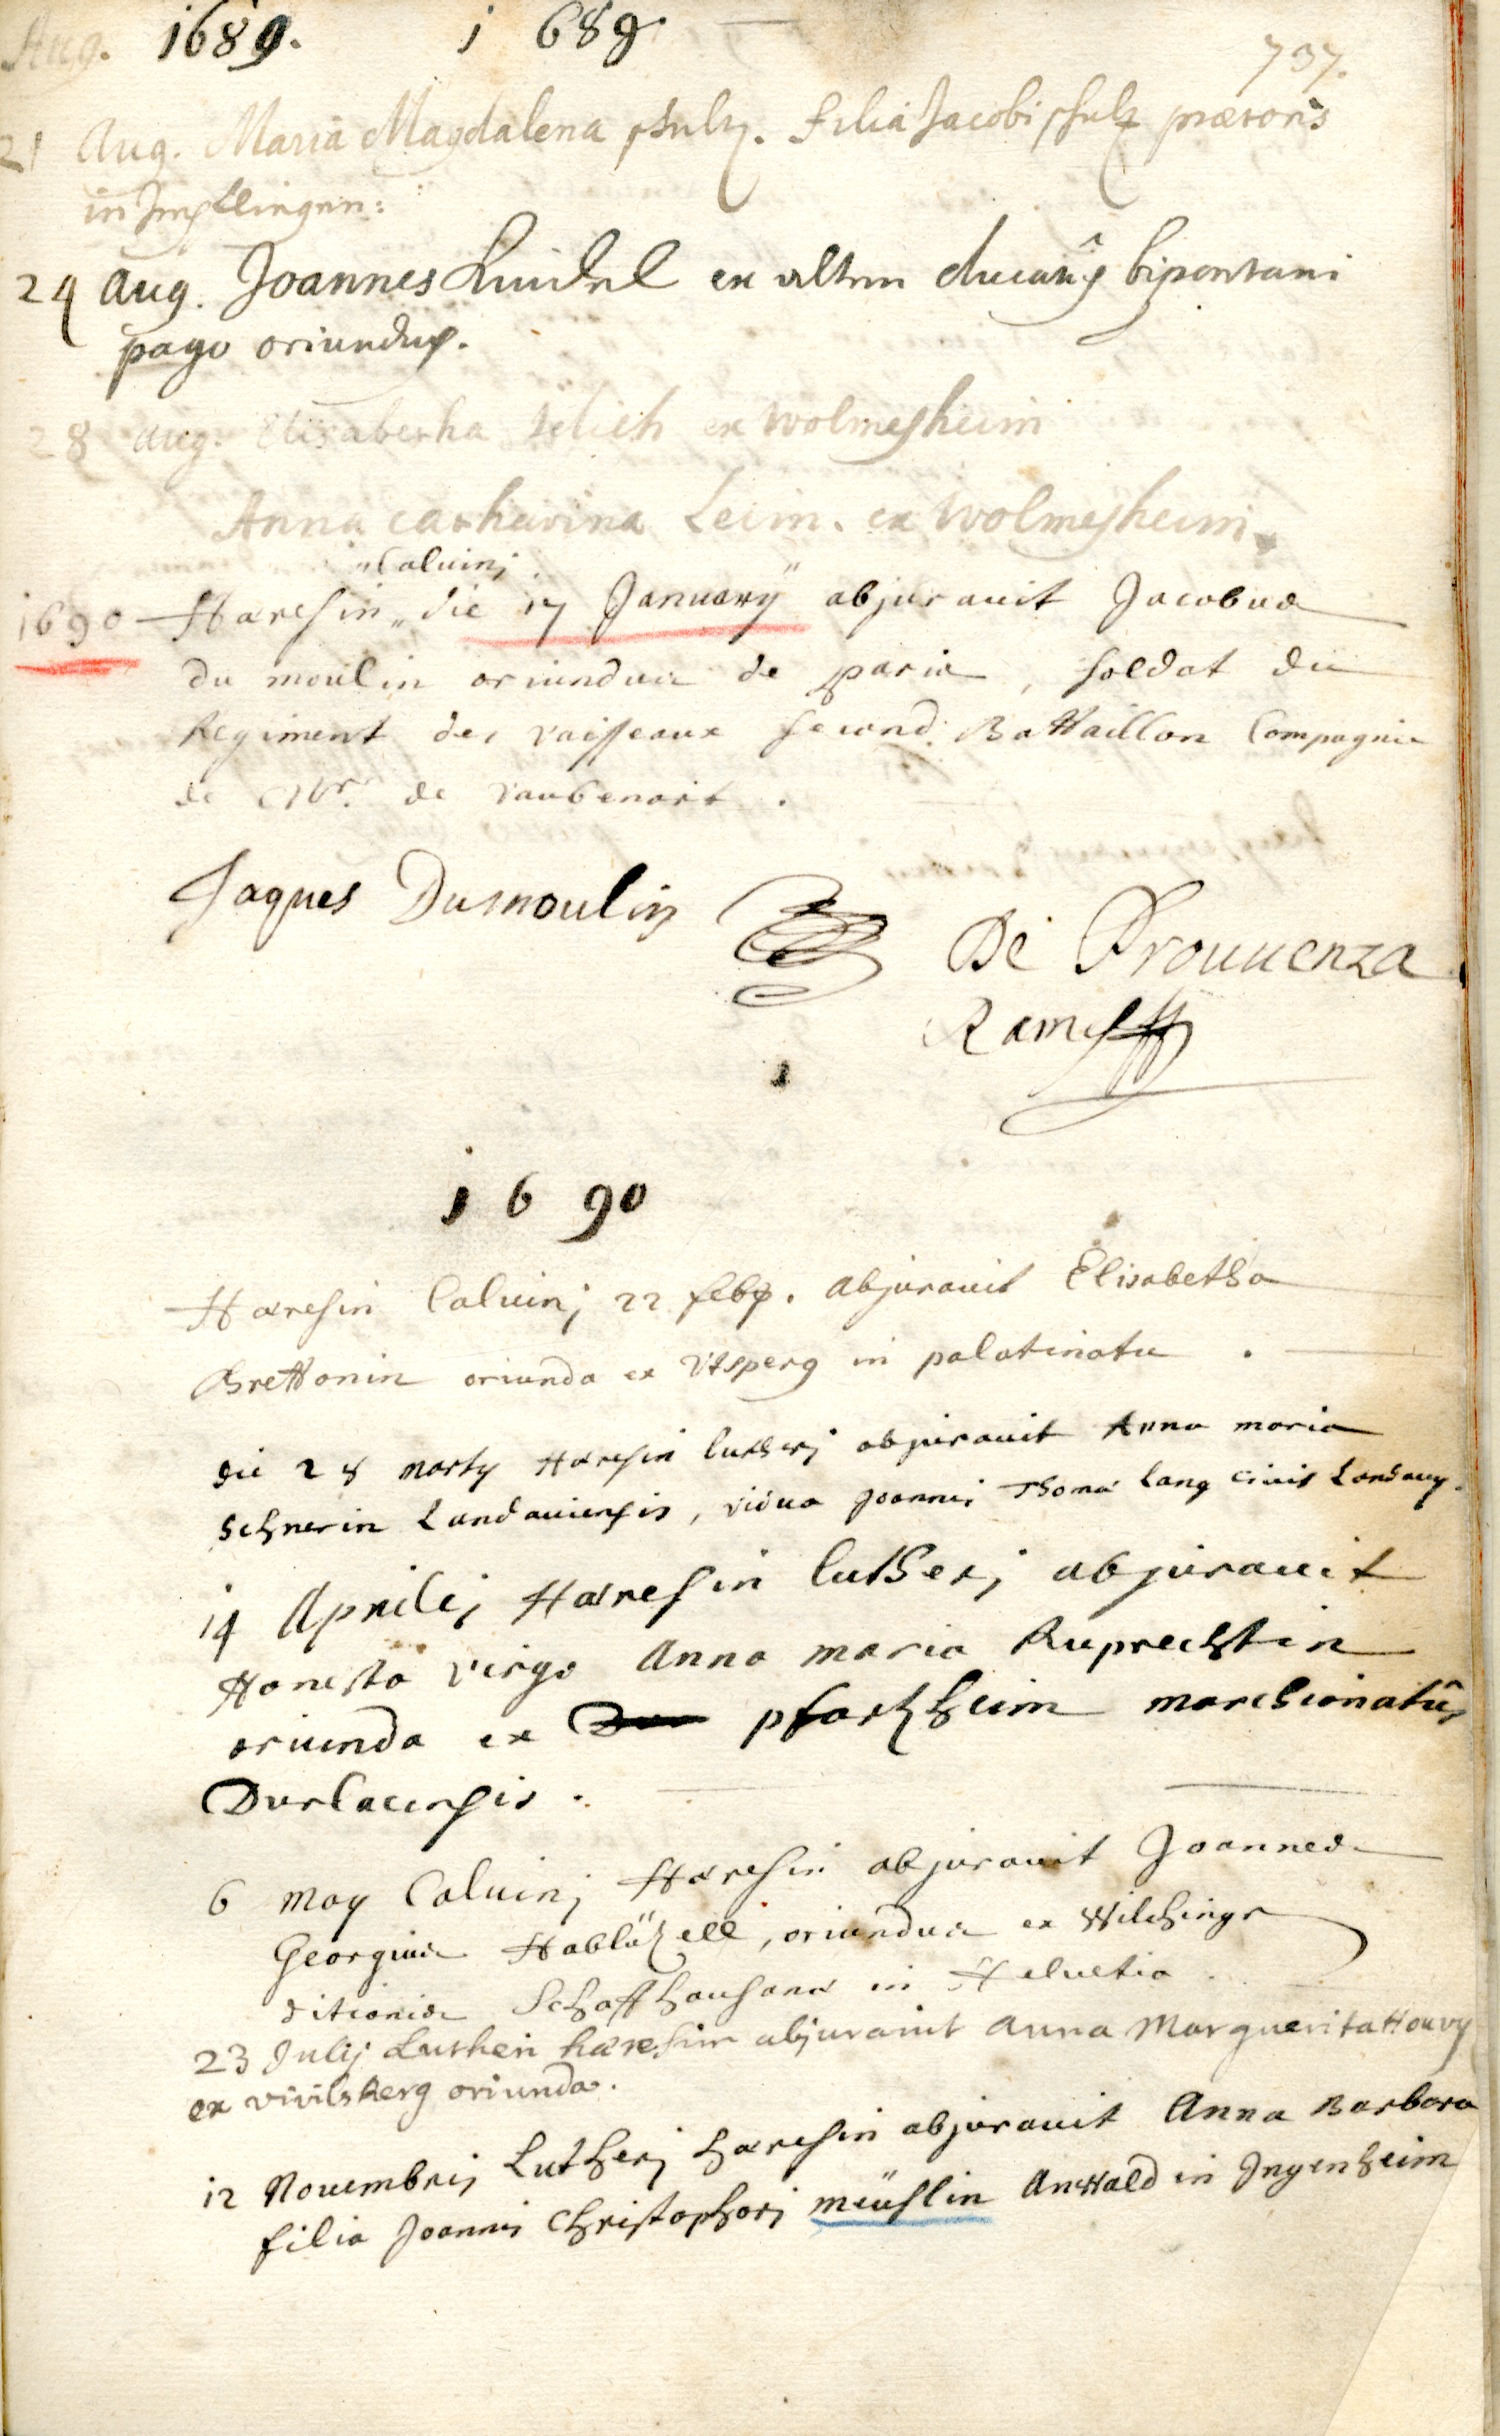 Aug. 1689. 1689.
737.
21 Aug. Maria Magdalena schulz. filia Jacobi schulz prætoris
in Impflingen:
24 Aug. Joannes ex altem ducatûs bipontani
pago oriundus.
28 Aug. Elisabetha ex Wolmesheim
Anna Catharina Leim. ex Wolmesheim.
Calvinj
1690 Hæresin die 17 January abjuravit Jacobus
du moulin oriundus de paris, soldat du
Regiment des vaisseaux second Battaillon Compagnie
de Mr. de vaubenort.
Jaques Dumoulin De Prouuenza
Rame
1690
Hæresin Calvinj 22 febr. abjuravit Elisabetha
Brettonin oriunda ex Utsperg in palatinatu.
die 28 marty Hæresin lutherj abjuravit Anna maria
schnerin Landaviensis, vidua Joannis Thomæ Lang civis Landavy.
14 Aprilis Hæresin lutherj abjuravit
Honesta virgo Anna maria Ruprechtin
oriunda ex pfortzheim marchionatûs
Durlacensis.
6 may Calvinj Hæresin abjuravit Joannes
Georgius Hablützell, oriundus ex Wilchinge
ditionis Schaffhausanæ in Helvetia.
23 Julij Lutheri hæresim abjuravit Anna Marguerita Houvy
ex vivilsberg oriunda.
12 Novembris Lutherj hæresin abjuravit Anna Barbara
filia Joannis Christophorj meüslin Anwald in Ingenheim